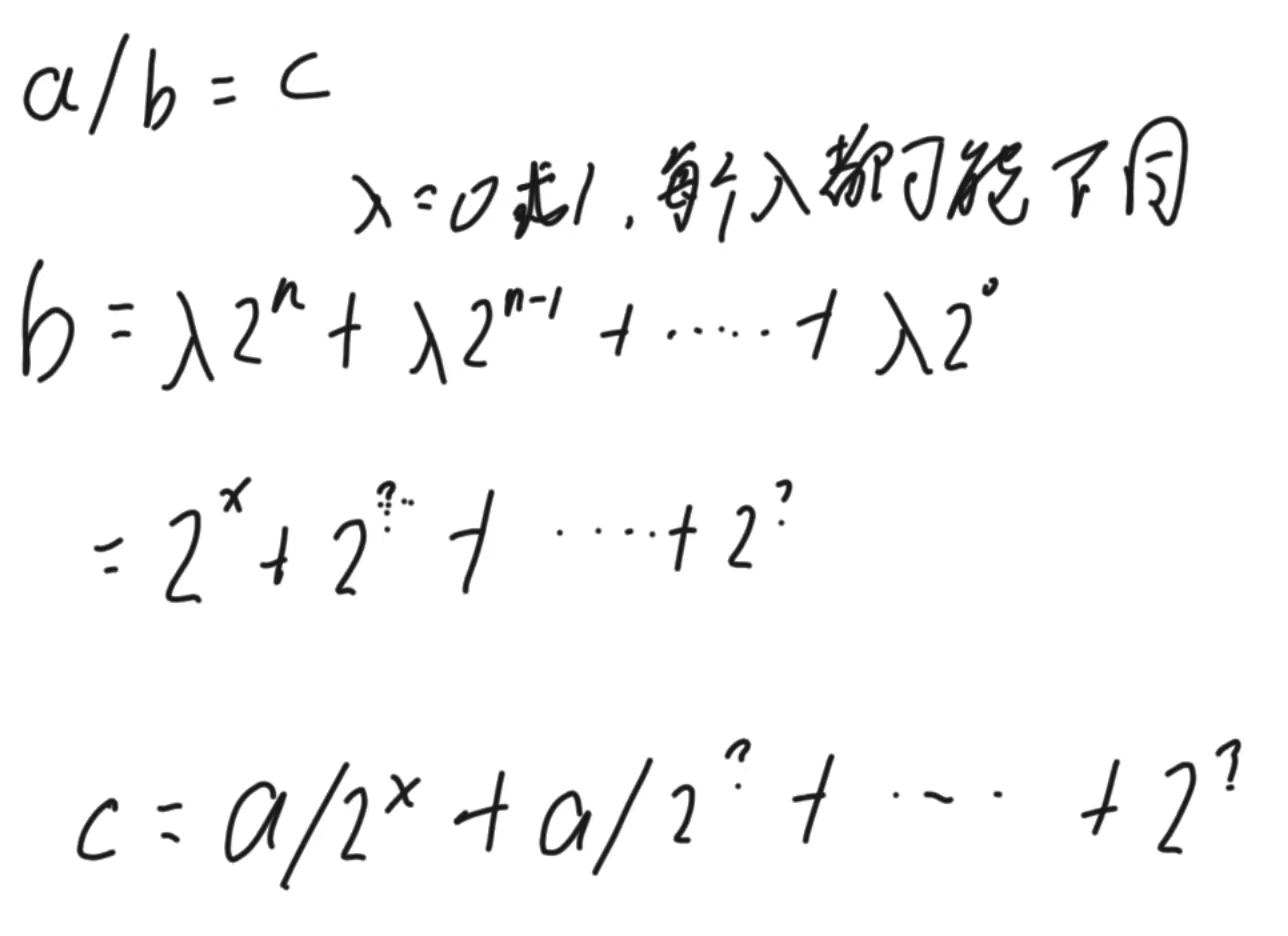 a/b = c
λ=0或1,每个λ都可能不同
b = λ2^n + λ2^{n-1} + ..... + λ2^0
= 2^x + 2^? + ..... + 2^?
c = a/2^x + a/2^? + ... + 2^?